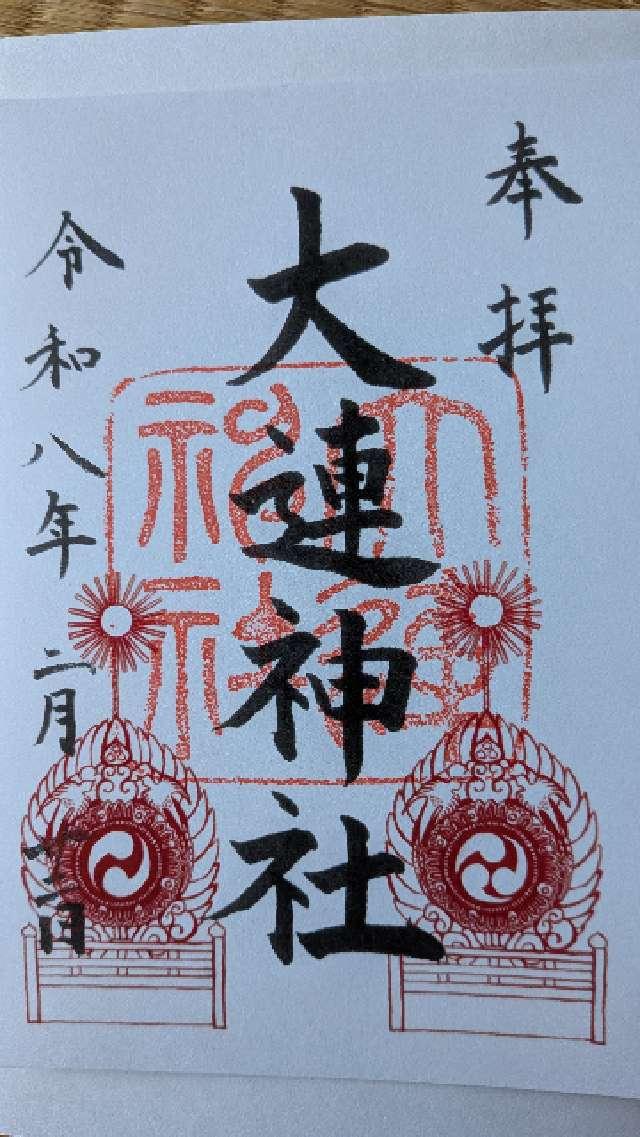 奉拝
大連神社
大連神社
令和八年二月廿二日